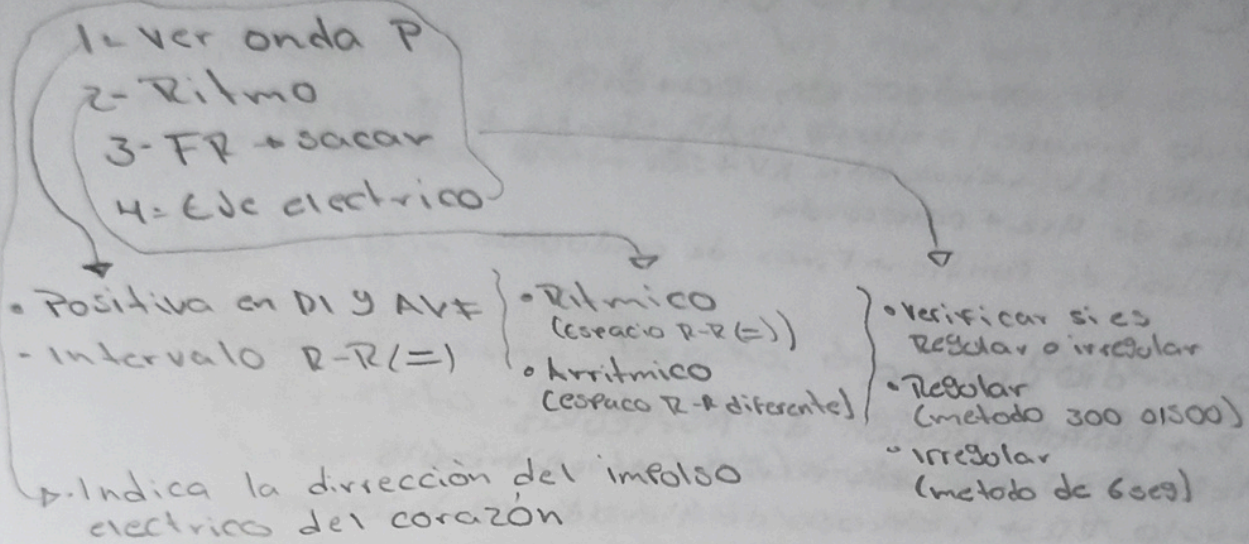 1- ver onda P
2- Ritmo
3- FR → sacar
4- Eje electrico
• Positiva en D1 y AVF
- Intervalo R-R(=)
• Ritmico
(espacio R-R(=))
• Arritmico
(espaco R-R diferente)
• verificar si es
Regular o irregular
• Regular
(metodo 300 o 1500)
• irregular
(metodo de 6seg)
• Indica la dirrección del impolso
electrico del corazón